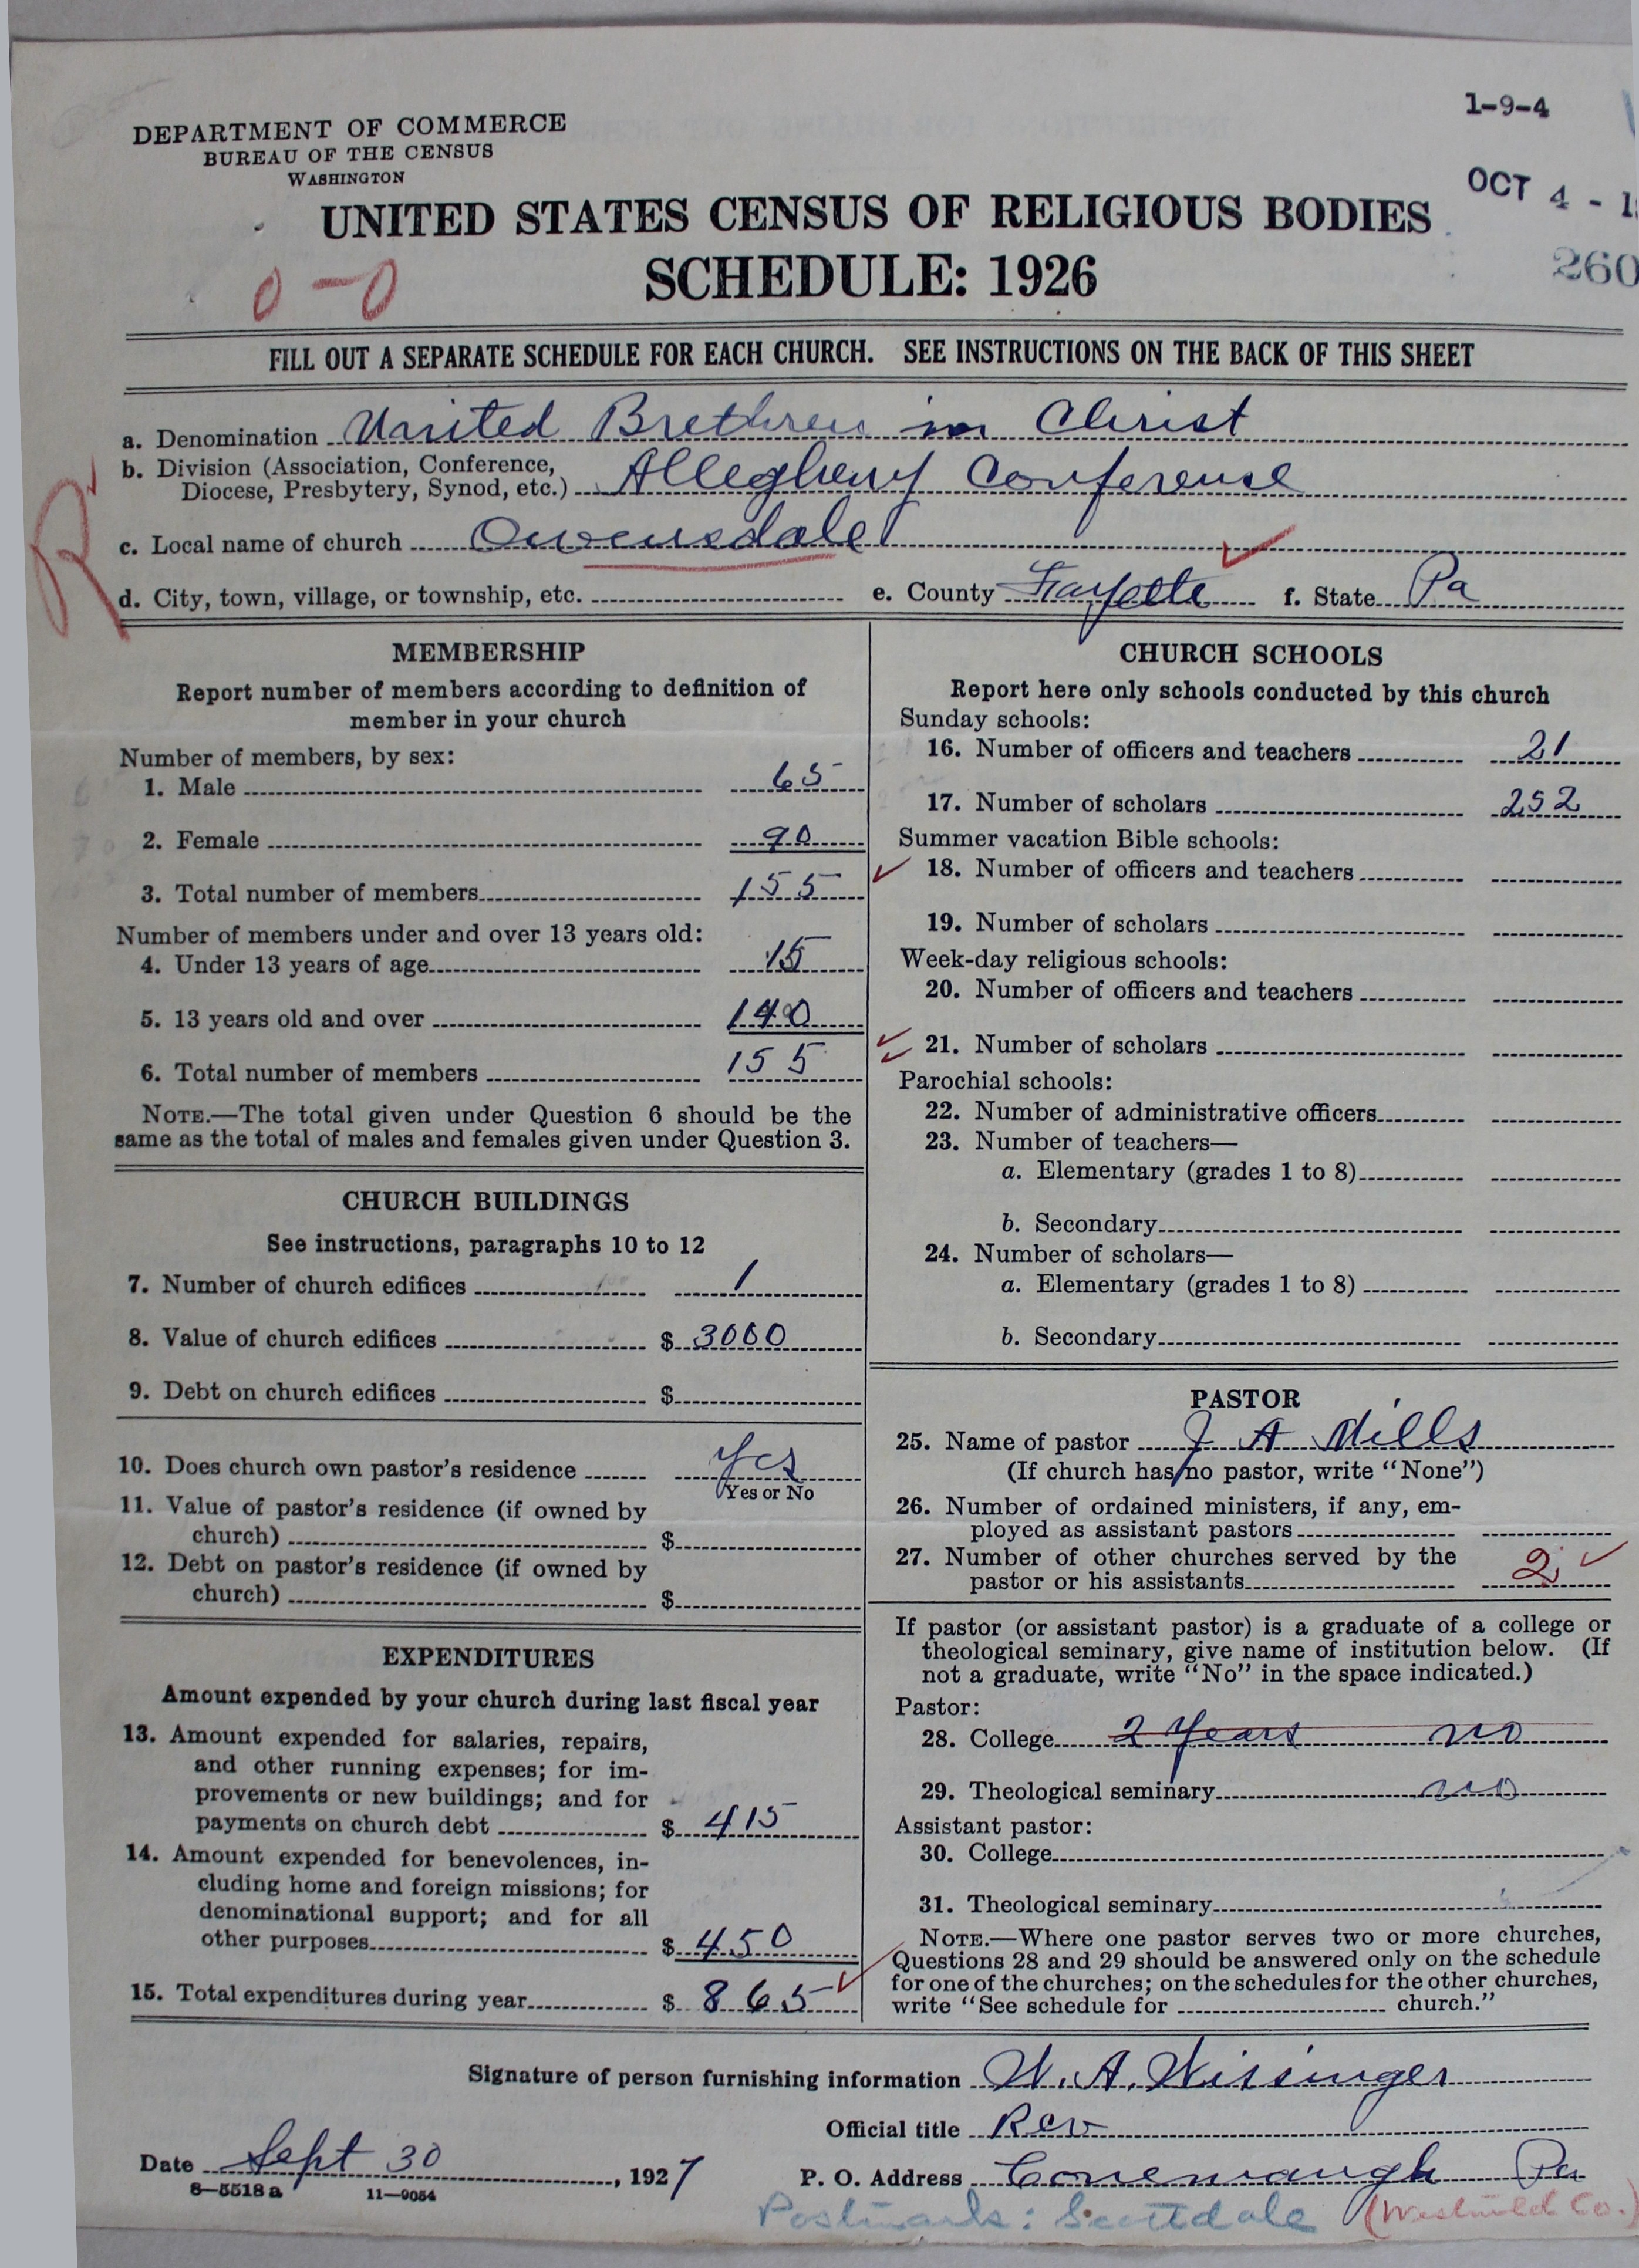 1-9-4
DEPARTMENT OF COMMERCE
BUREAU OF THE CENSUS
WASHINGTON
OCT 4 - 1
UNITED STATES CENSUS OF RELIGIOUS BODIES
260
SCHEDULE: 1926
0-0
FILL OUT A SEPARATE SCHEDULE FOR EACH CHURCH. SEE INSTRUCTIONS ON THE BACK OF THIS SHEET
a. Denomination United Brethren in Christ
b. Division (Association, Conference,
Diocese, Presbytery, Synod, etc.) Allegheny Conference
R
c. Local name of church Owensdale
d. City, town, village, or township, etc. e. County Fayette f. State Pa
MEMBERSHIP
Report number of members according to definition of
member in your church
Number of members, by sex:
1. Male 65
2. Female 90
3. Total number of members 155
Number of members under and over 13 years old:
4. Under 13 years of age 15
5. 13 years old and over 140
6. Total number of members 155
NOTE.—The total given under Question 6 should be the
same as the total of males and females given under Question 3.
CHURCH BUILDINGS
See instructions, paragraphs 10 to 12
7. Number of church edifices 1
8. Value of church edifices $ 3000
9. Debt on church edifices $
10. Does church own pastor's residence Yes
Yes or No
11. Value of pastor's residence (if owned by
church) $
12. Debt on pastor's residence (if owned by
church) $
EXPENDITURES
Amount expended by your church during last fiscal year
13. Amount expended for salaries, repairs,
and other running expenses; for im-
provements or new buildings; and for
payments on church debt $ 415
14. Amount expended for benevolences, in-
cluding home and foreign missions; for
denominational support; and for all
other purposes $ 450
15. Total expenditures during year $ 865
CHURCH SCHOOLS
Report here only schools conducted by this church
Sunday schools:
16. Number of officers and teachers 21
17. Number of scholars 252
Summer vacation Bible schools:
18. Number of officers and teachers
19. Number of scholars
Week-day religious schools:
20. Number of officers and teachers
21. Number of scholars
Parochial schools:
22. Number of administrative officers
23. Number of teachers—
a. Elementary (grades 1 to 8)
b. Secondary
24. Number of scholars—
a. Elementary (grades 1 to 8)
b. Secondary
PASTOR
25. Name of pastor J A Mills
(If church has no pastor, write "None")
26. Number of ordained ministers, if any, em-
ployed as assistant pastors
27. Number of other churches served by the
pastor or his assistants 2
If pastor (or assistant pastor) is a graduate of a college or
theological seminary, give name of institution below. (If
not a graduate, write "No" in the space indicated.)
Pastor:
28. College 2 Years no
29. Theological seminary no
Assistant pastor:
30. College
31. Theological seminary
NOTE.—Where one pastor serves two or more churches,
Questions 28 and 29 should be answered only on the schedule
for one of the churches; on the schedules for the other churches,
write "See schedule for church."
Signature of person furnishing information W. A. Wissinger
Official title Rev
Date Sept 30, 1927 P. O. Address Conemaugh Pa
8-5518a 11-9054
Postmark: Scottdale (Westmld Co.)